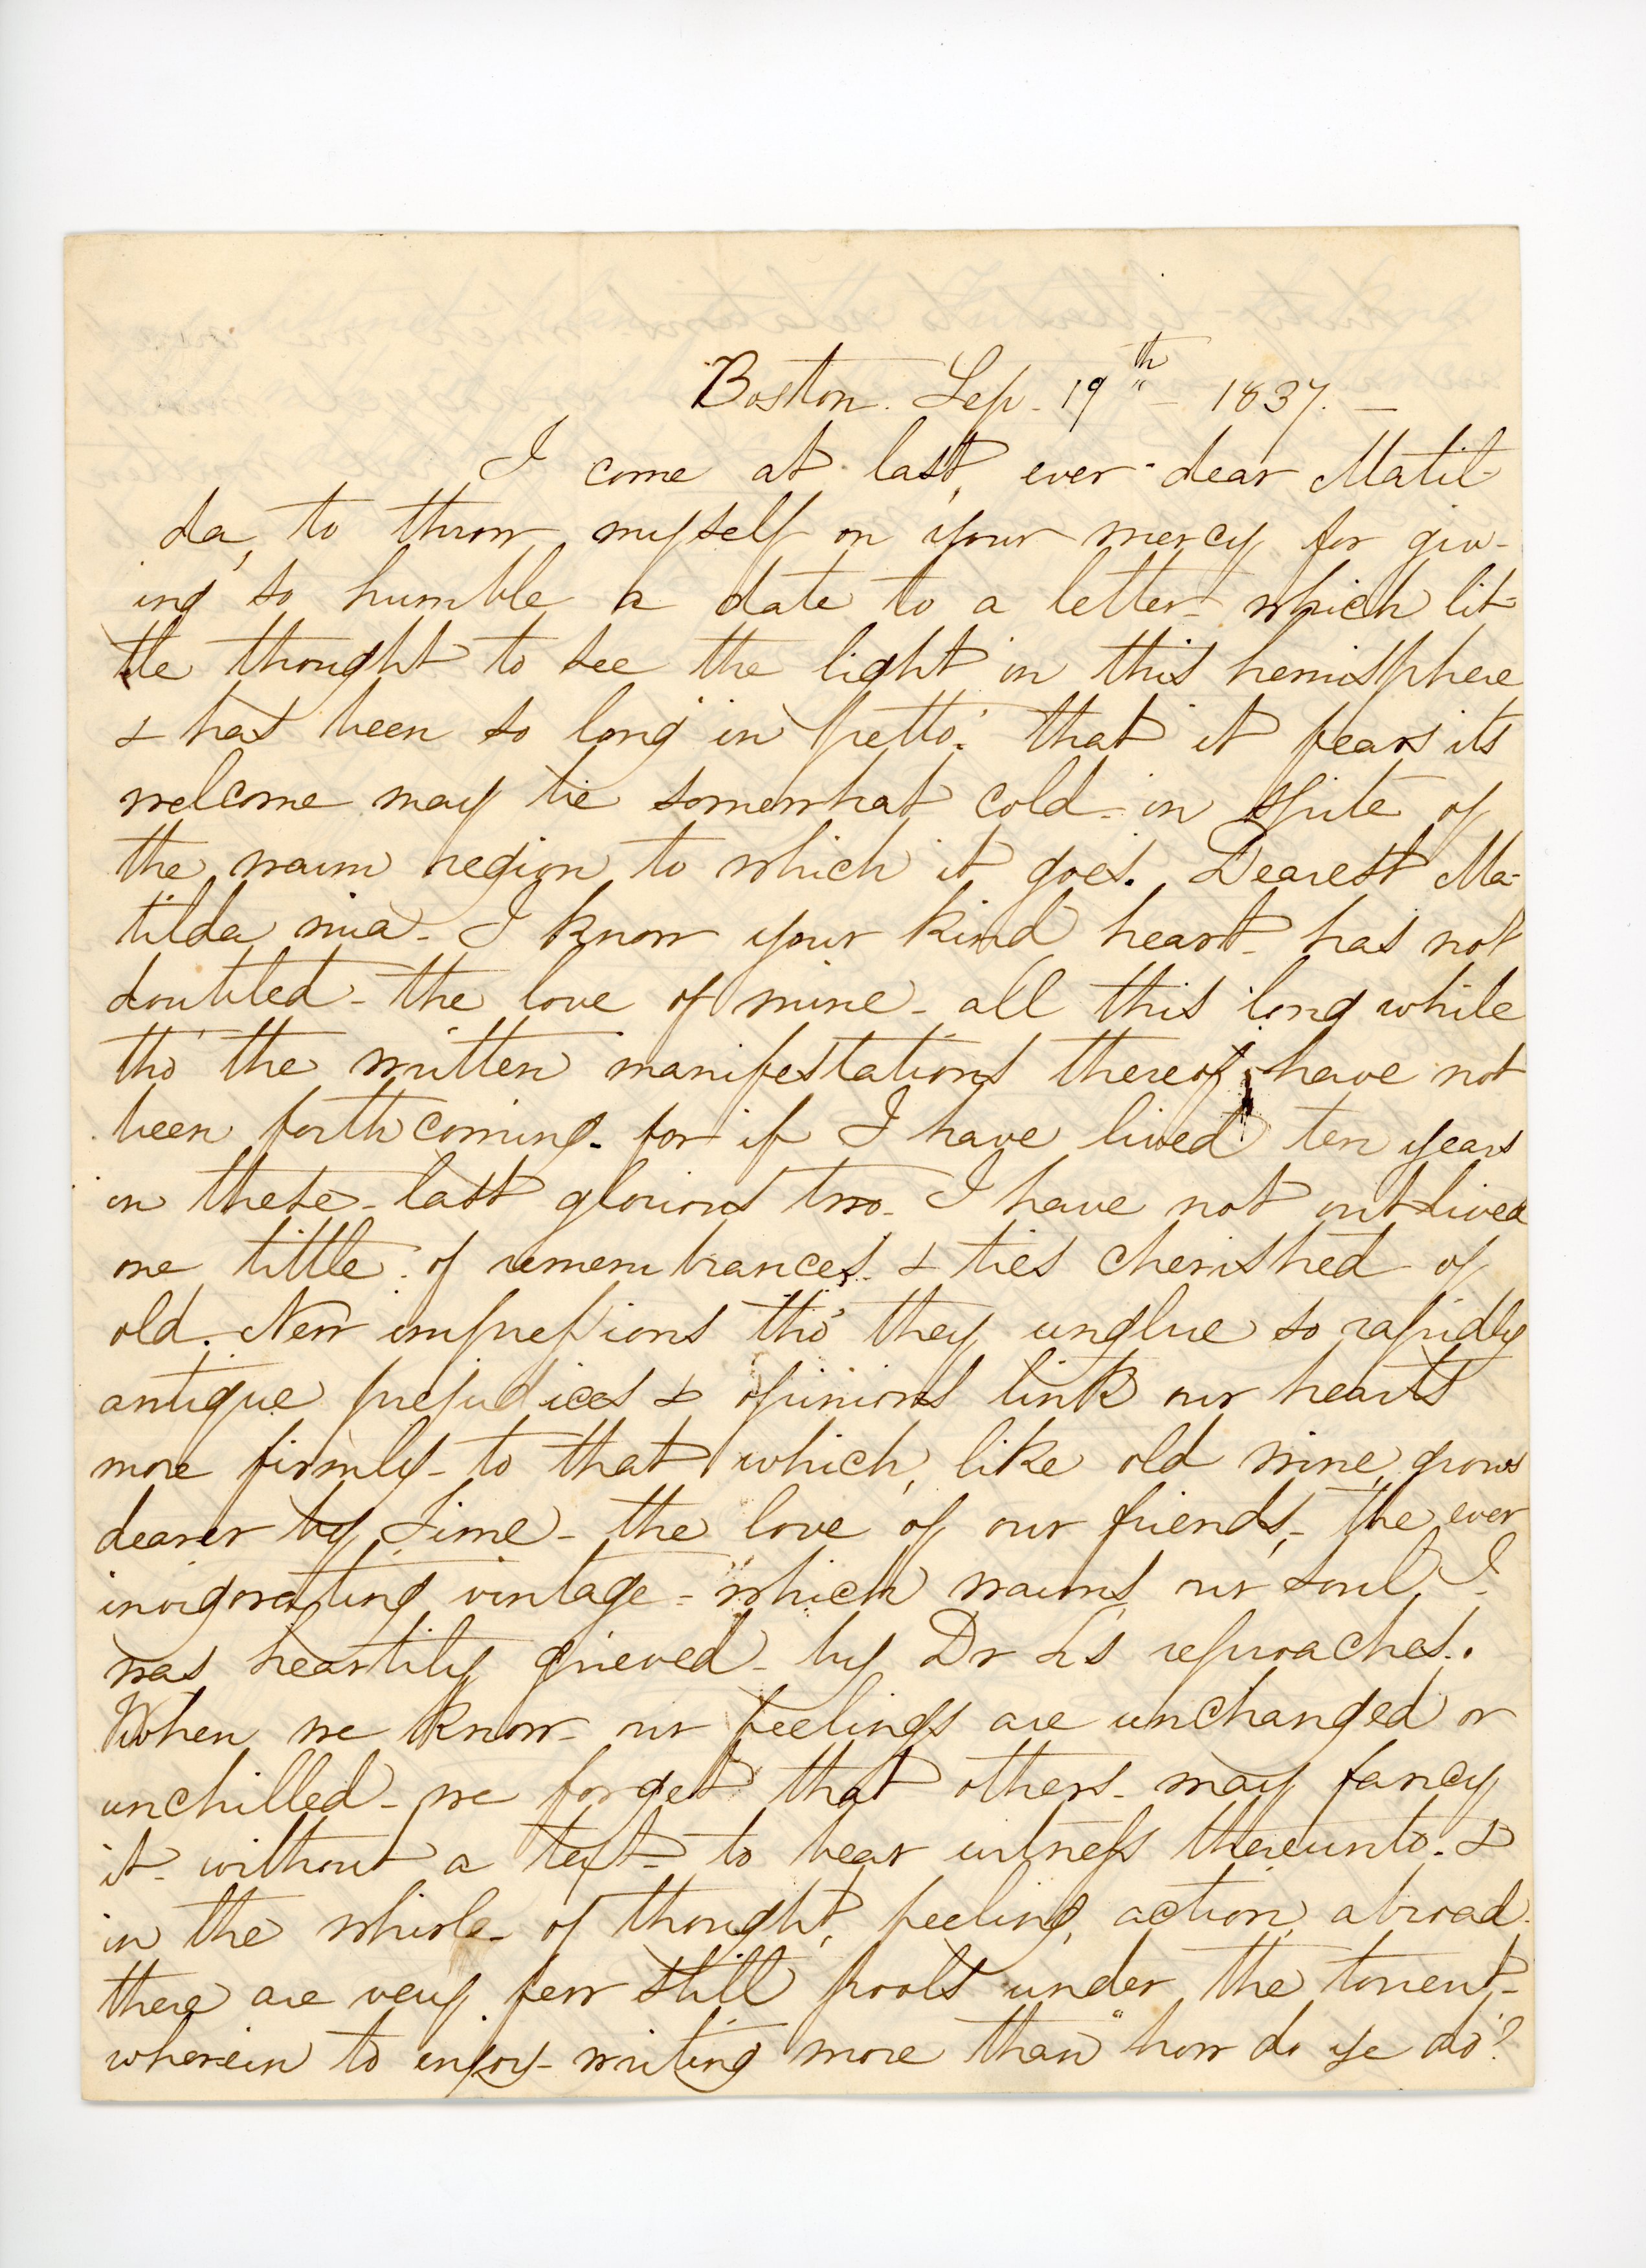 Boston. Sep. 19th - 1837. -
I come at last, ever dear Matil-
da, to throw myself on your mercy for giv-
ing so humble a date to a letter - which lit-
tle thought to see the light in this hemisphere
& has been so long 'in petto' that it fears its
welcome may be somewhat cold - in spite of
the warm region to which it goes. Dearest Ma-
tilda mia - I know your kind heart - has not
doubted - the love of mine - all this long while
tho' the written manifestations thereof have not
been forthcoming - for if I have lived ten years
in these - last glorious two - I have not outlived
one tittle of remembrances - & ties cherished of
old. New impressions tho' they unglue so rapidly
antique prejudices & opinions link our hearts
more firmly - to that which, like old wine, grows
dearer by time - the love of our friends, - the ever
invigorating vintage - which warms our soul. I
was heartily grieved - by Dr L's reproaches.
When we know - our feelings are unchanged or
unchilled - we forget that others - may fancy
it - without a text - to bear witness thereunto. &
in the whirle - of thought, feeling, action, abroad -
there are very few still pools under the torrent -
wherein to enjoy - writing more than "how do ye do"?